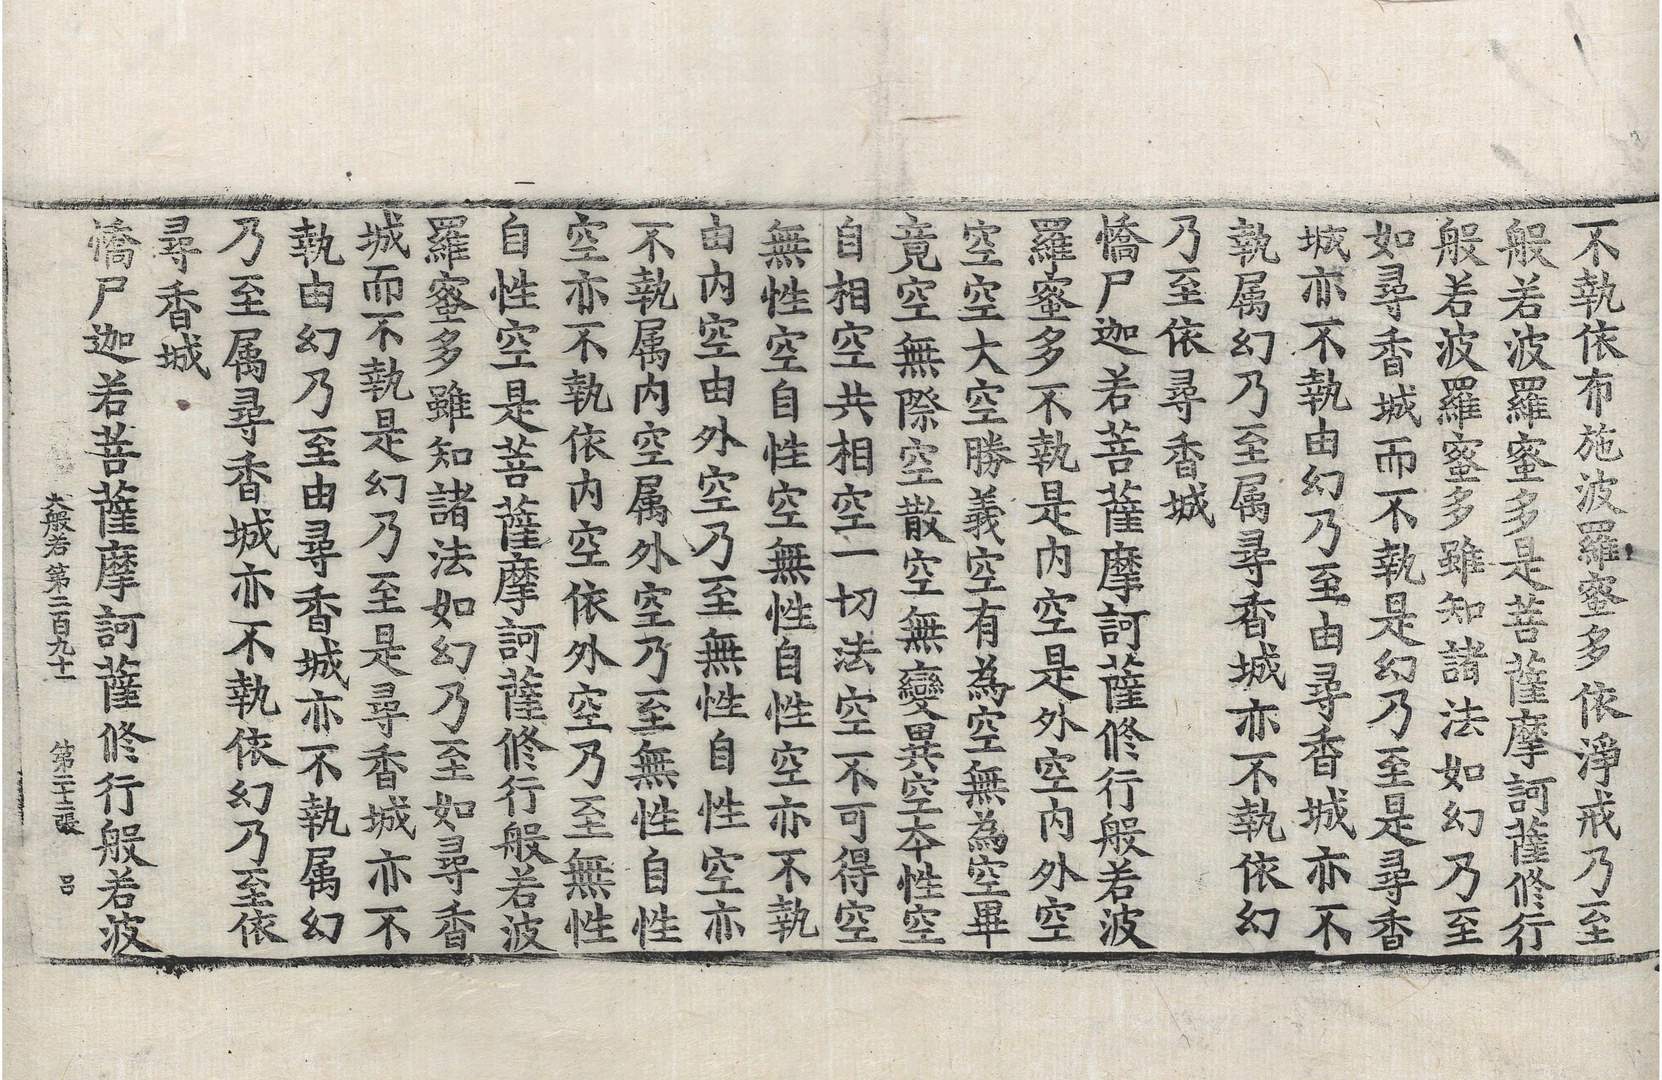 不執依布施波羅蜜多依淨戒乃至
般若波羅蜜多是菩薩摩訶薩修行
般若波羅蜜多雖知諸法如幻乃至
如尋香城而不執是幻乃至是尋香
城亦不執由幻乃至由尋香城亦不
執属幻乃至属尋香城亦不執依幻
乃至依尋香城
憍尸迦若菩薩摩訶薩修行般若波
羅蜜多不執是内空是外空内外空
空空大空勝義空有為空無為空畢
竟空無際空散空無變異空本性空
自相空共相空一切法空不可得空
無性空自性空無性自性空亦不執
由内空由外空乃至無性自性空亦
不執属内空属外空乃至無性自性
空亦不執依内空依外空乃至無性
自性空是菩薩摩訶薩修行般若波
羅蜜多雖知諸法如幻乃至如尋香
城而不執是幻乃至是尋香城亦不
執由幻乃至由尋香城亦不執属幻
乃至属尋香城亦不執依幻乃至依
尋香城
憍尸迦若菩薩摩訶薩修行般若波
大般若第二百九十一 第二十二張 吕